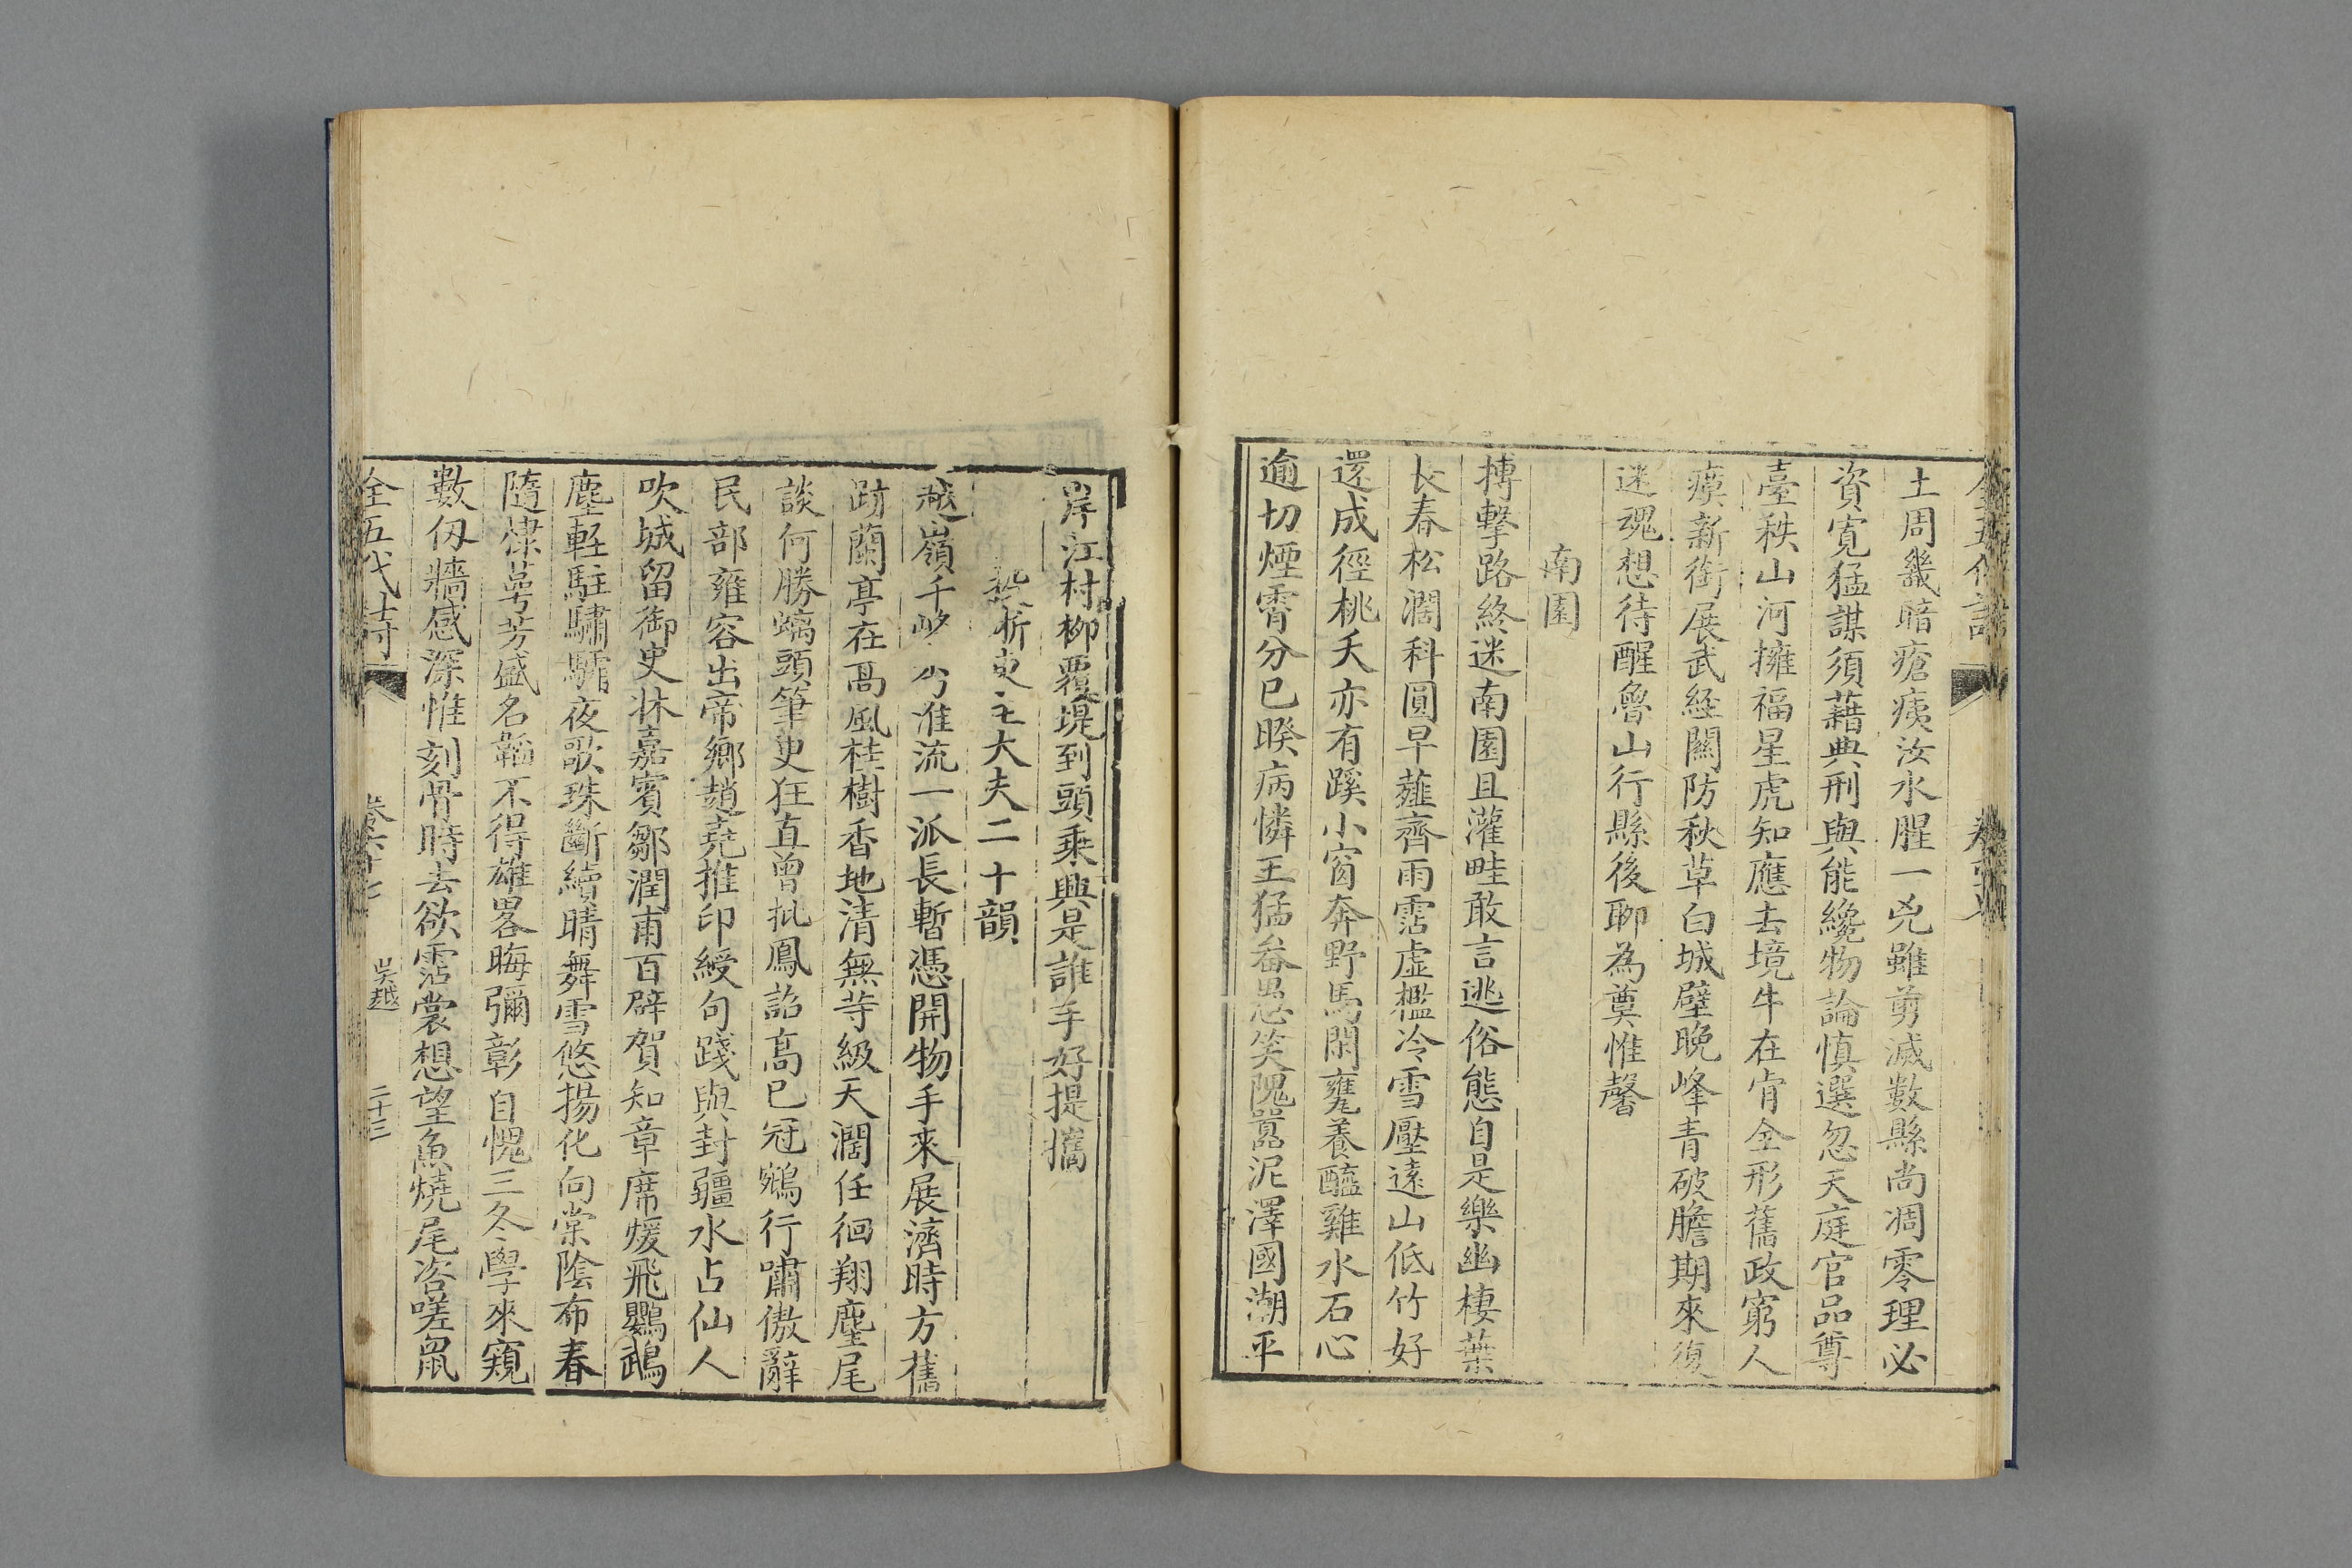 土周畿暗瘡痍汝水腥一兇雖剪滅數縣尚凋零理必
資寛猛謀須藉典刑與能纔物論慎選忽天庭官品尊
臺秩山河擁福星虎知應去境牛在肯全形舊政窮人
瘼新銜展武經關防秋草白城壁晚峰青破膽期來復
迷魂想待醒魯山行縣後聊為奠惟馨
南園
搏擊路終迷南園且灌畦敢言逃俗態自是樂幽棲葉
長春松濶科圓早薤齊雨霑虚檻冷雪壓遠山低竹好
還成徑桃夭亦有蹊小窗奔野馬閑甕養醯雞水石心
逾切煙霄分已暌病憐王猛畚愚笑隗囂泥澤國潮平
岸江村柳覆堤到頭乗興是誰手好提攜
投浙東王大夫二十韻
越嶺千峰淮流一派長暫憑開物手來展濟時方舊
跡蘭亭在高風桂樹香地清無等級天濶任徊翔麈尾
談何勝螭頭筆史狂直曾批鳳詔高已冠鵷行嘯傲辭
民部雍容出帝鄉趙堯推印綬句踐與封疆水占仙人
吹城留御史牀嘉賓鄒潤甫百辟賀知章席煖飛鸚鵡
塵輕駐驌驦夜歌珠斷續晴舞雪悠揚化向棠陰布春
隨棣萼芳盛名韜不得雄畧晦彌彰自愧三冬學來窺
數仞牆感深惟刻骨時去欲霑裳想望魚燒尾咨嗟鼠
全五代詩 卷六十七 吳越 二十三